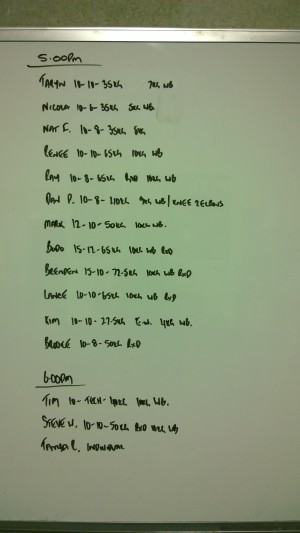 5.00pm
TARYN 10-10-35KG 7KG WB
NICOLA 10-6-35KG 5KG WB
NAT F. 10-8-35KG 8KG
RENEE 10-10-65KG 10KG WB
RAY 10-8-65KG RXD 10KG WB
DAN P. 10-8- 9KG WB/KNEE 2 ELBOWS
MARK 12-10-50KG 10KG WB.
15-12-65KG 10KG WB RXD
BRENDEN 15-10-72.5KG 10KG WB RXD
LANCE 10-10-65KG 10KG WB RXD
KIM 10-10-27.5KG 4KG WB.
10-8-50KG RXD
6.00pm
TIM 10-TECH- 10KG WB.
STEVE W. 10-10-50KG RXD 10KG WB